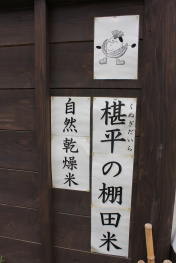 椹平の棚田米
くぬぎだいら
自然乾燥米